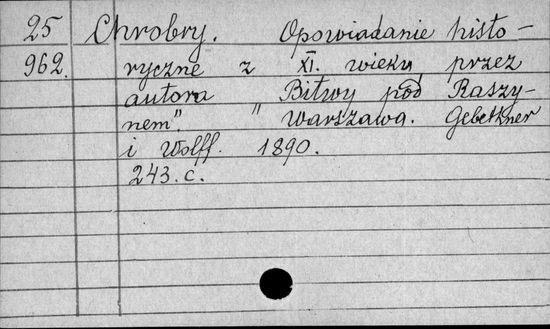 25 Chrobry. Opowiadanie histo-
962. ryczne z XI. wieku przez
autora „Bitwy pod Raszy-
nem". Warszawa. Gebethner
i Wolff. 1890.
243. c.